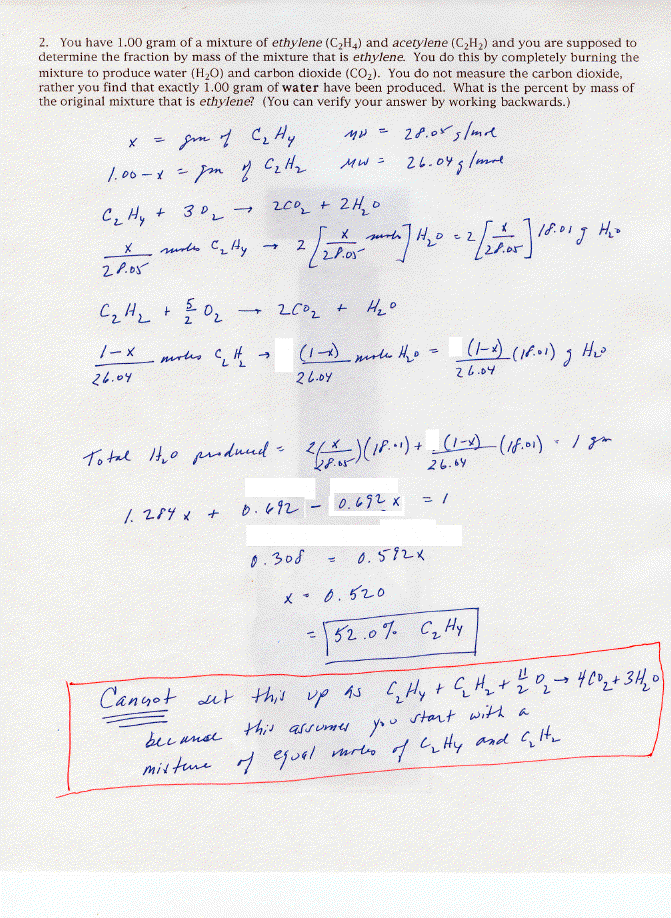 2. You have 1.00 gram of a mixture of ethylene (C₂H₄) and acetylene (C₂H₂) and you are supposed to
determine the fraction by mass of the mixture that is ethylene. You do this by completely burning the
mixture to produce water (H₂O) and carbon dioxide (CO₂). You do not measure the carbon dioxide,
rather you find that exactly 1.00 gram of water have been produced. What is the percent by mass of
the original mixture that is ethylene? (You can verify your answer by working backwards.)
x = gm of C₂H₄ MW = 28.05 g/mol
1.00 - x = gm of C₂H₂ MW = 26.04 g/mol
C₂H₄ + 3O₂ → 2CO₂ + 2H₂O
x/28.05 moles C₂H₄ → 2[x/28.05 moles] H₂O = 2[x/28.05] 18.01 g H₂O
C₂H₂ + 5/2 O₂ → 2CO₂ + H₂O
1-x/26.04 moles C₂H₂ → (1-x)/26.04 moles H₂O = (1-x)/26.04 (18.01) g H₂O
Total H₂O produced = 2(x/28.05)(18.01) + (1-x)/26.04 (18.01) = 1 gm
1.284x + 0.692 - 0.692x = 1
0.308 = 0.592x
x = 0.520
= 52.0% C₂H₄
Cannot set this up as C₂H₄ + C₂H₂ + 11/2 O₂ → 4CO₂ + 3H₂O
because this assumes you start with a
mixture of equal moles of C₂H₄ and C₂H₂